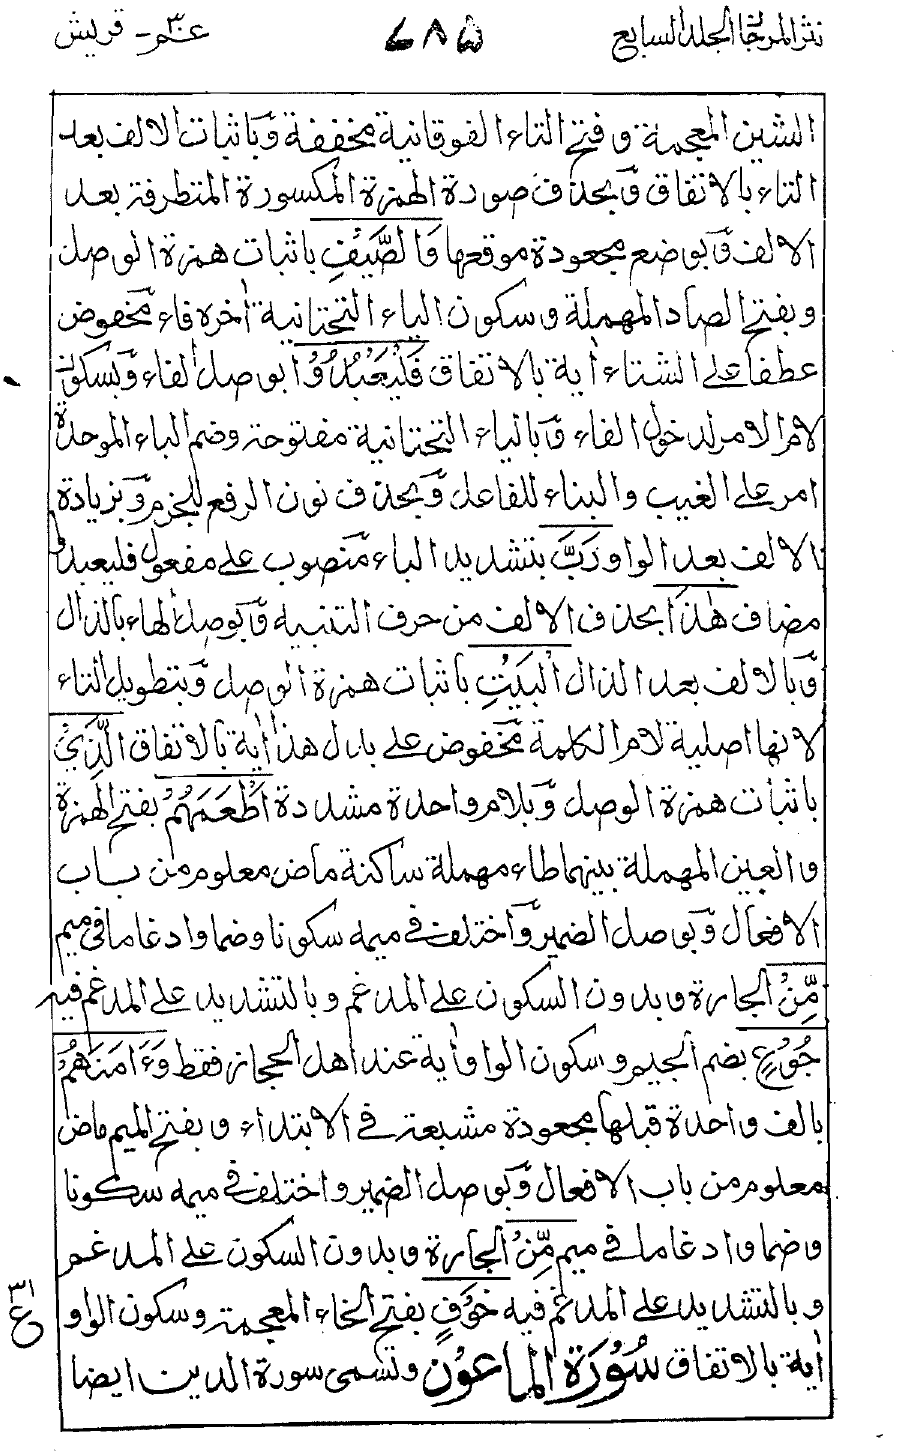 نثر المرجان الجلد السابع ٧٨٥ عم٣٠ - قريش
الشين المعجمة وفتح التاء الفوقانية مخففة وباثبات الالف بعد
التاء بالاتفاق وبحذف صورة الهمزة المكسورة المتطرفة بعد
الالف وبوضع مجعودة موقعها وَالصَّيْفِ باثبات همزة الوصل
وبفتح الصاد المهملة وسكون الياء التحتانية أخره فاء مخفوض
عطفا على الشتاء أية بالاتفاق فَلْيَعْبُدُوْا بوصل الفاء وبسكون
لام الامر لدخول الفاء وبالياء التحتانية مفتوحة وضم الباء الموحدة
امر على الغيب والبناء للفاعل وبحذف نون الرفع للجزم وبزيادة
الالف بعد الواو رَبَّ بتشديد الباء منصوب على مفعول فليعبدوا
مضاف هٰذَا بحذف الالف من حرف التنبيه وبوصل الهاء بالذال
وبالالف بعد الذال الْبَيْتِ باثبات همزة الوصل وبتطويل التاء
لانها اصلية لام الكلمة مخفوض على بدل هذا أية بالاتفاق الَّذِيْ
باثبات همزة الوصل وبلام واحدة مشددة اَطْعَمَهُمْ بفتح الهمزة
والعين المهملة بينهما طاء مهملة ساكنة ماض معلوم من باب
الافعال وبوصل الضمير واختلف في ميمه سكونا وضما وادغاما في ميم
مِّنْ الجارة وبدون السكون على المدغم وبالتشديد على المدغم فيه
جُوْعٍ بضم الجيم وسكون الواو أية عند اهل الحجاز فقط وَءَامَنَهُمْ
بالف واحدة قبلها مجعودة مشبعة في الابتداء وبفتح الميم ماض
معلوم من باب الافعال وبوصل الضمير واختلف في ميمه سكونا
وضما وادغاما في ميم مِّنْ الجارة وبدون السكون على المدغم
وبالتشديد على المدغم فيه خَوْفٍ بفتح الخاء المعجمة وسكون الواو
٣١
ع
أية بالاتفاق سُوْرَةُ الماعون وتسمى سورة الدين ايضا